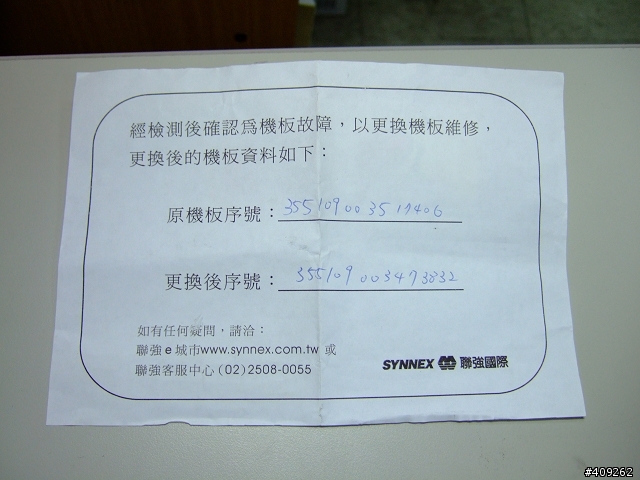 經檢測後確認為機板故障，以更換機板維修，
更換後的機板資料如下：
原機板序號：355109003517406
更換後序號：355109003473832
如有任何疑問，請洽：
聯強e城市www.synnex.com.tw 或
聯強客服中心(02)2508-0055
SYNNEX 聯強國際
#409262